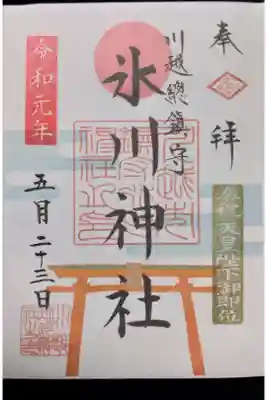 奉拝
奉祝 天皇陛下御即位
川越總鎮守
氷川神社
令和元年
五月二十三日